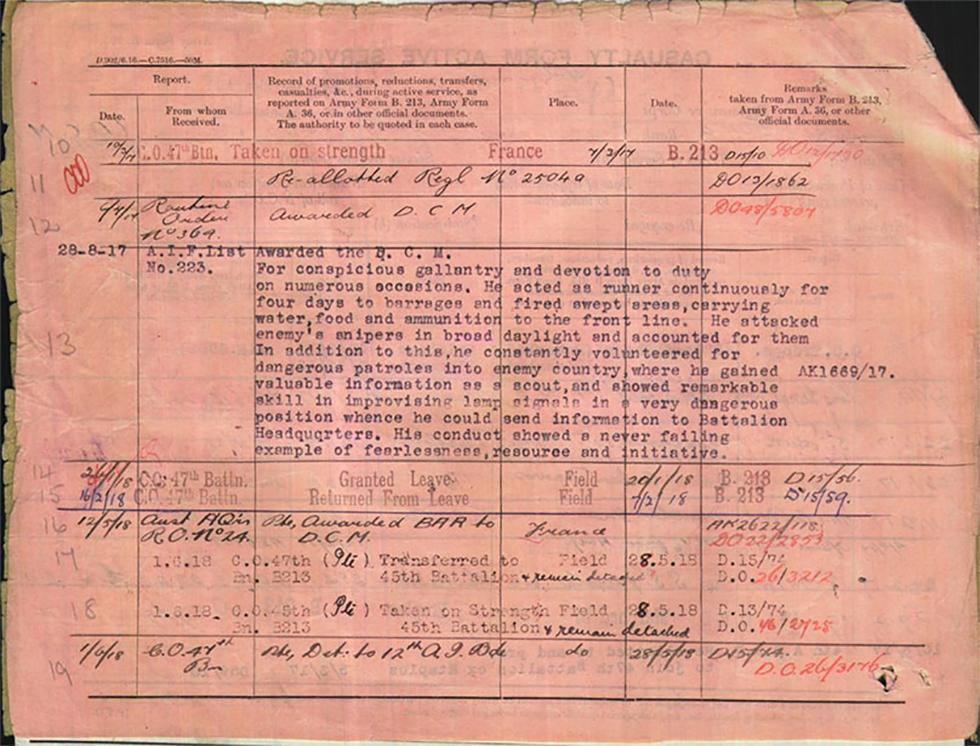 D.902/6.16.—C.7516.—50M.
Report.
Date.
From whom
Received.
Record of promotions, reductions, transfers,
casualties, &c., during active service, as
reported on Army Form B. 213, Army Form
A. 36, or in other official documents.
The authority to be quoted in each case.
Place.
Date.
Remarks
taken from Army Form B. 213,
Army Form A. 36, or other
official documents.
10
C.O. 47th Btn. Taken on strength France 7/2/17 B.213 D15/10
11 Re-allotted Regl No 2504a DO13/1862
12 Routine Awarded D.C.M. DO48/5804
Orders
No 369.
28-8-17 A.I.F.List Awarded the D. C. M.
No.223. For conspicuous gallantry and devotion to duty
on numerous occasions. He acted as runner continuously for
four days to barrages and fired swept areas,carrying
water,food and ammunition to the front line. He attacked
enemy's snipers in broad daylight and accounted for them
13 In addition to this,he constantly volunteered for
dangerous patroles into enemy country,where he gained AK1669/17.
valuable information as a scout,and showed remarkable
skill in improvising lamp signals in a very dangerous
position whence he could send information to Battalion
Headquqrters. His conduct showed a never failing
example of fearlessness,resource and initiative.
14 26/1/18 C.O. 47th Battn. Granted Leave Field 20/1/18 B. 213 D15/56.
15 16/2/18 C.O. 47th Battn. Returned From Leave Field 7/2/18 B. 213 D15/59.
16 12/5/18 Aust HQrs Pte, Awarded BAR to France AK2622/118
R.O. No 24. D.C.M. DO22/2853
17 1.6.18 C.O.47th (Pte) Transferred to Field 28.5.18 D.15/74
Bn. B213 45th Battalion & remain detached D.O. 26/3212
18 1.6.18. C.O.45th (Pte) Taken on Strength Field 28.5.18 D.13/74
Bn. B213 45th Battalion & remain detached D.O. 46/2725
19 1/6/18 C.O. 47th Pte, Det. to 12th A.I. Bde do 28/5/18 D15/74
Bn D.O. 26/3176